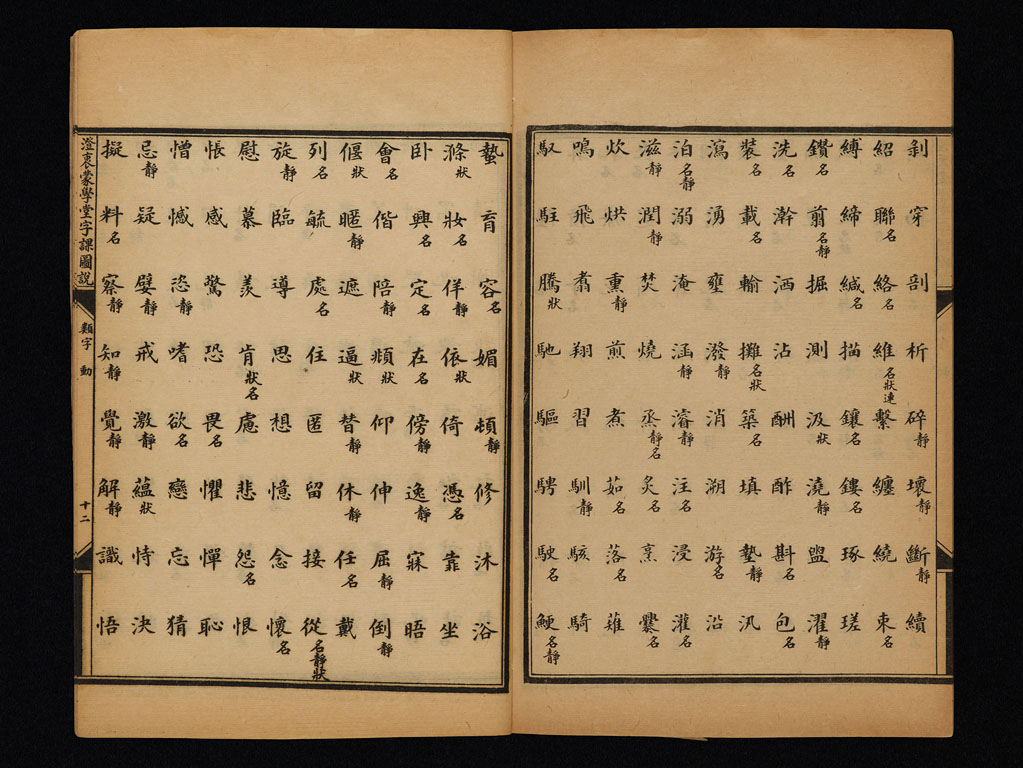 剝穿剖析碎靜壞靜斷靜續
紹聯名絡名維名狀連繫纏繞束名
縛締緘名描鑲名鏤名琢瑳
鑽名翦名靜掘測汲狀澆靜盥濯靜
洗名澣洒沾酬酢斟名包名
裝名載名輸攤名狀築名填墊靜汎
瀉湧壅潑靜消溯游名沿
泊名靜溺淹涵靜濬靜注名浸灌名
滋靜潤靜焚燒烝靜名炙名烹爨名
炊烘熏靜煎煮茹名落名薙
鳴飛翥翔習馴靜駭騎
馭駐騰狀馳驅騁駛名鯁名靜
蟄育容名媚頓靜修沐浴
滌狀妝名佯靜依狀倚憑名靠坐
卧興名定名在名傍靜逸靜寐晤
會名偕陪靜頫狀仰伸屈靜倒靜
偃狀暱靜遮逼狀替靜休靜任名戴
列名毓處名住匿留接從名靜狀
旋靜臨導思想憶念懷名
慰慕羨肯狀名慮悲怨名恨
悵感驚恐畏名懼憚恥
憎憾恣靜嗜欲名戀忘猜
忌靜疑嬖靜戒激靜蘊狀恃決
擬料名察靜知靜覺靜解靜識悟
澄衷蒙學堂字課圖說
類字 動
十二